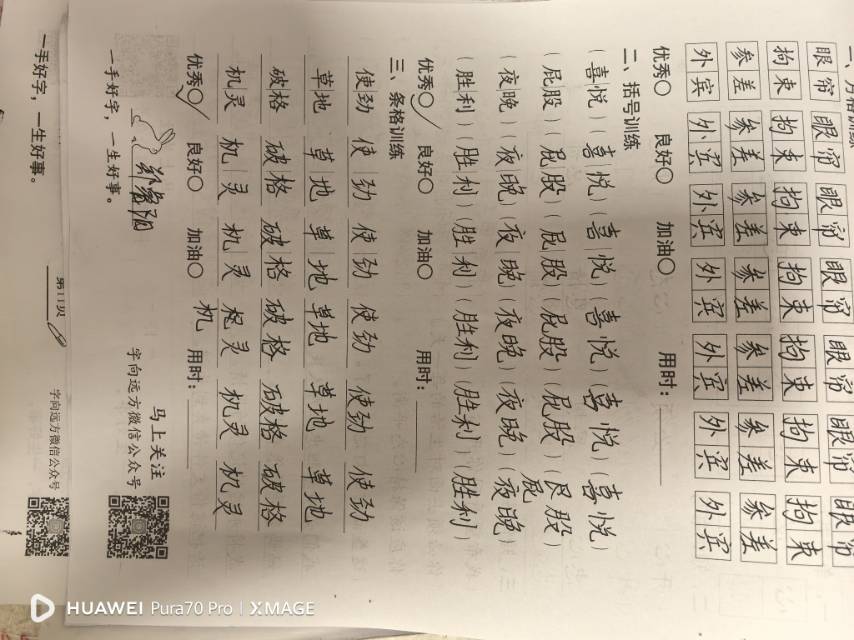 眼帘 眼帘 眼帘 眼帘 眼帘 眼帘 眼帘
拘束 拘束 拘束 拘束 拘束 拘束 拘束
参差 参差 参差 参差 参差 参差 参差
外宾 外宾 外宾 外宾 外宾 外宾 外宾
优秀○ 良好○ 加油○ 用时:
二、括号训练
(喜悦)(喜悦)(喜悦)(喜悦)(喜悦)(喜悦)
(屁股)(屁股)(屁股)(屁股)(屁股)(艮股)
屁
(夜晚)(夜晚)(夜晚)(夜晚)(夜晚)(夜晚)
(胜利)(胜利)(胜利)(胜利)(胜利)(胜利)
优秀○ 良好○ 加油○ 用时:
三、条格训练
使劲 使劲 使劲 使劲 使劲 使劲
草地 草地 草地 草地 草地 草地
破格 破格 破格 破格 破格 破格
机灵 机灵 机灵 机灵 机灵
机
优秀○ 良好○ 加油○ 用时:
马上关注
字向远方微信公众号
一手好字,一生好事。
第11页
字向远方微信公众号
一手好字,一生好事。
HUAWEI Pura70 Pro | XMAGE